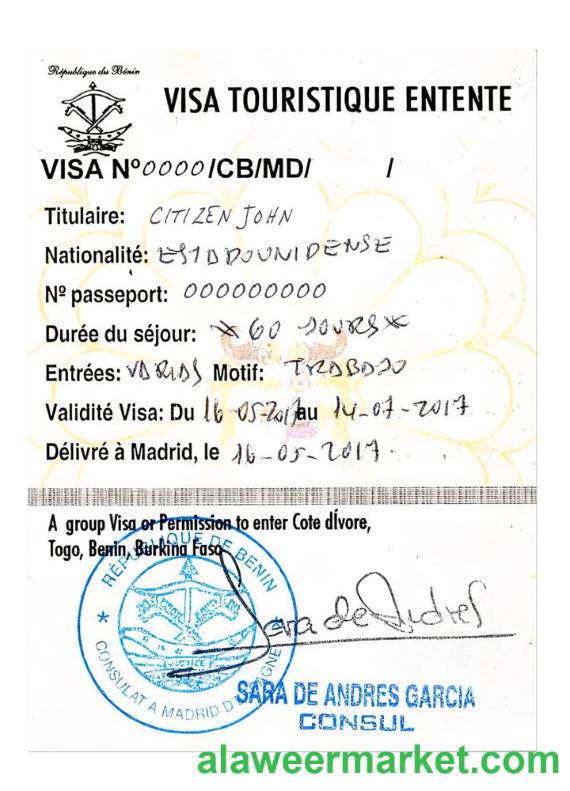 République du Bénin
VISA TOURISTIQUE ENTENTE
VISA Nº0000/CB/MD/ /
Titulaire: CITIZEN JOHN
Nationalité: ESTADOUNIDENSE
Nº passeport: 000000000
Durée du séjour: * 60 JOURS *
Entrées: VARIAS Motif: TRABAJO
Validité Visa: Du 16-05-2017 au 14-07-2017
Délivré à Madrid, le 16-05-2017
A group Visa or Permission to enter Cote dÍvore,
Togo, Benin, Burkina Faso
RÉPUBLIQUE DE BENIN
CONSULAT A MADRID D'ESPAGNE
Sara de Andres
SARA DE ANDRES GARCIA
CONSUL
alaweermarket.com